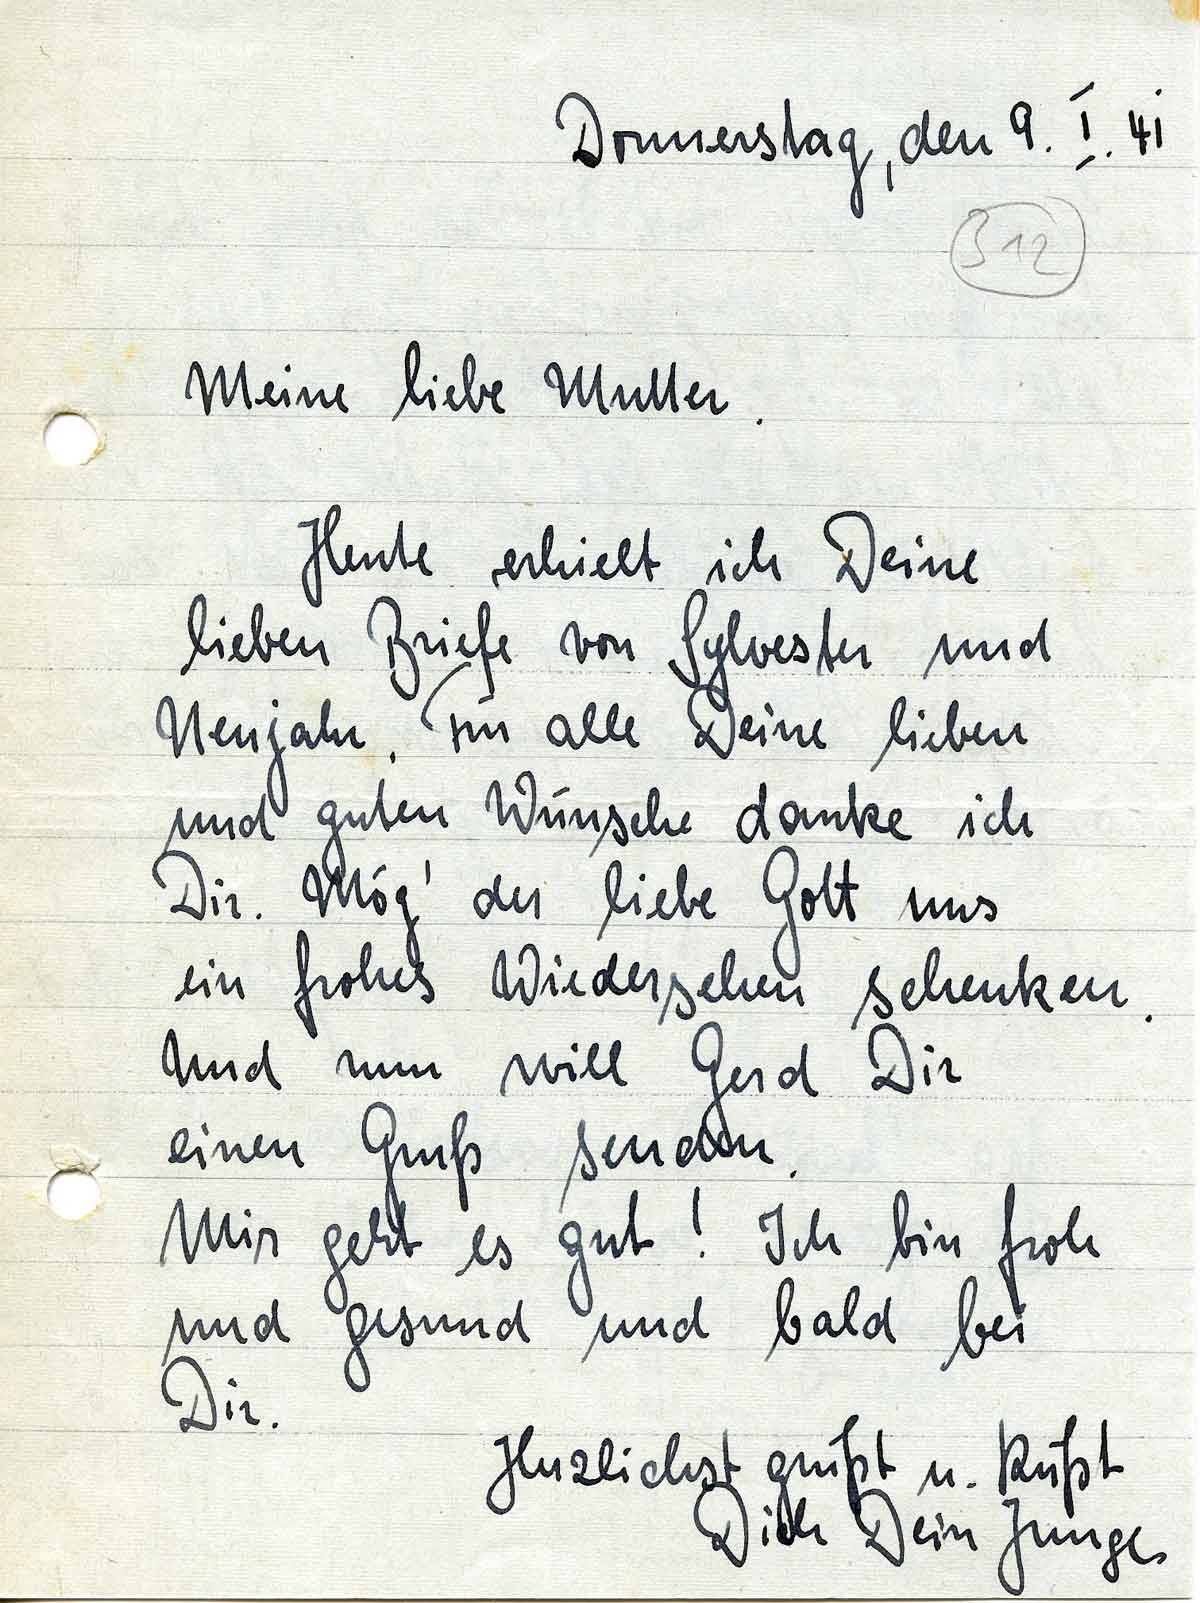 Donnerstag, den 9. I. 41
312
Meine liebe Mutter.
Heute erhielt ich Deine
lieben Briefe von Sylvester und
Neujahr. Für alle Deine lieben
und guten Wünsche danke ich
Dir. Mög' der liebe Gott uns
ein frohes Wiedersehen schenken.
Und nun will Gerd Dir
einen Gruß senden.
Mir geht es gut! Ich bin froh
und gesund und bald bei
Dir.
Herzlichst grüßt u. küßt
Dich Dein Junge.